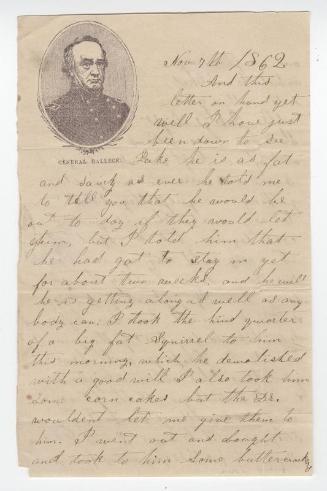 Nov 7th 1862
And this
letter on hand yet
well I have just
been down to see
GENERAL HALLECK.
Jake he is as fat
and sawsy as ever he told me
to tell you that he would be
out to day if they would let
him, but I told him that
he had got to stay in yet
for about two weeks, and he will
he is getting along as well as any
body can. I took the hind quarter
of a big fat Squirrel to him
this morning, which he demolished
with a good will I also took him
some corn cakes but the Dr.
wouldent let me give them to
him. I went out and bought
and took to him some buttercrackers